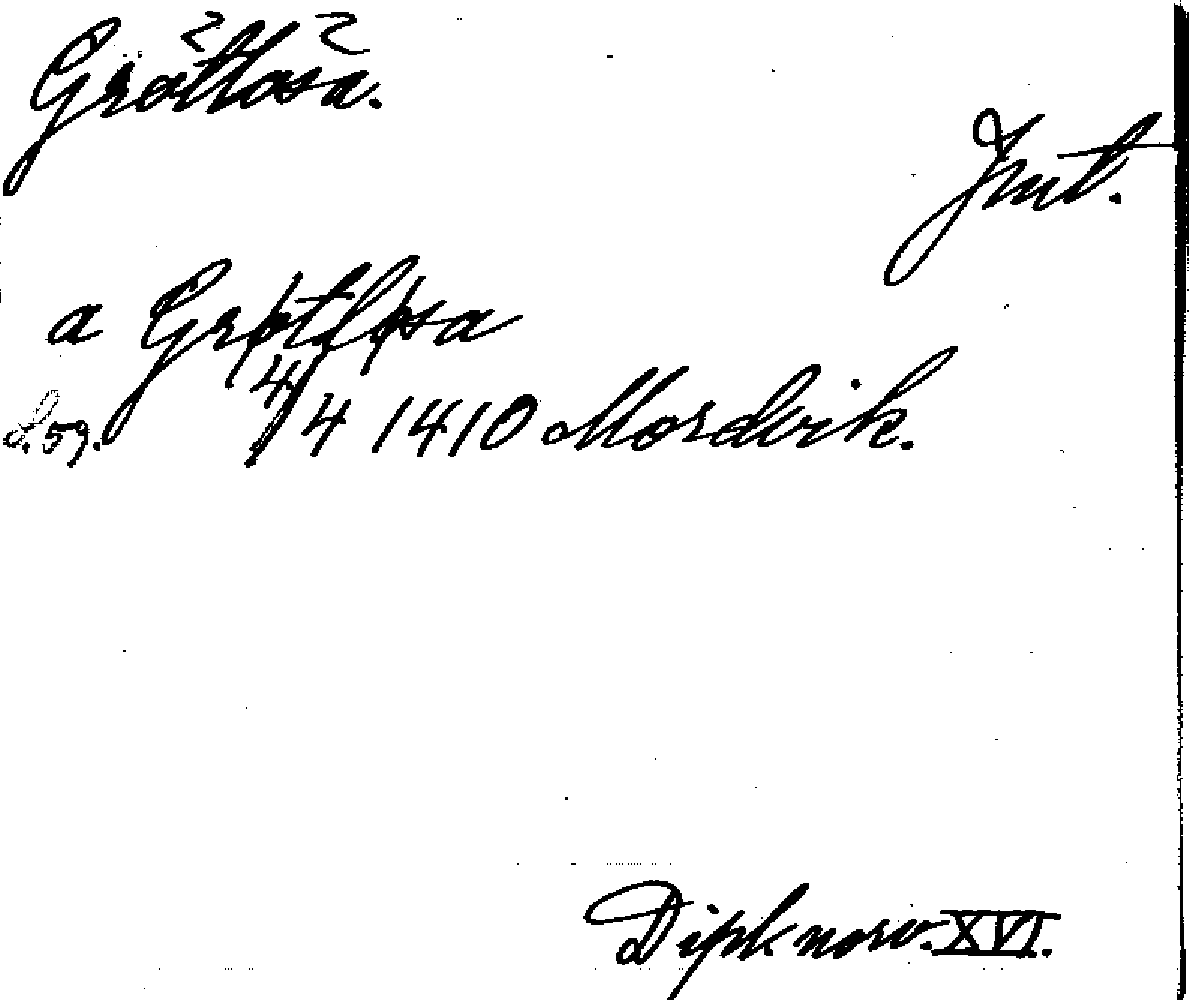 Grötlosa.
Jmt.
a Grøtløsa
s. 59. 4/4 1410 Mordvik.
Dipl. norv. XVI.